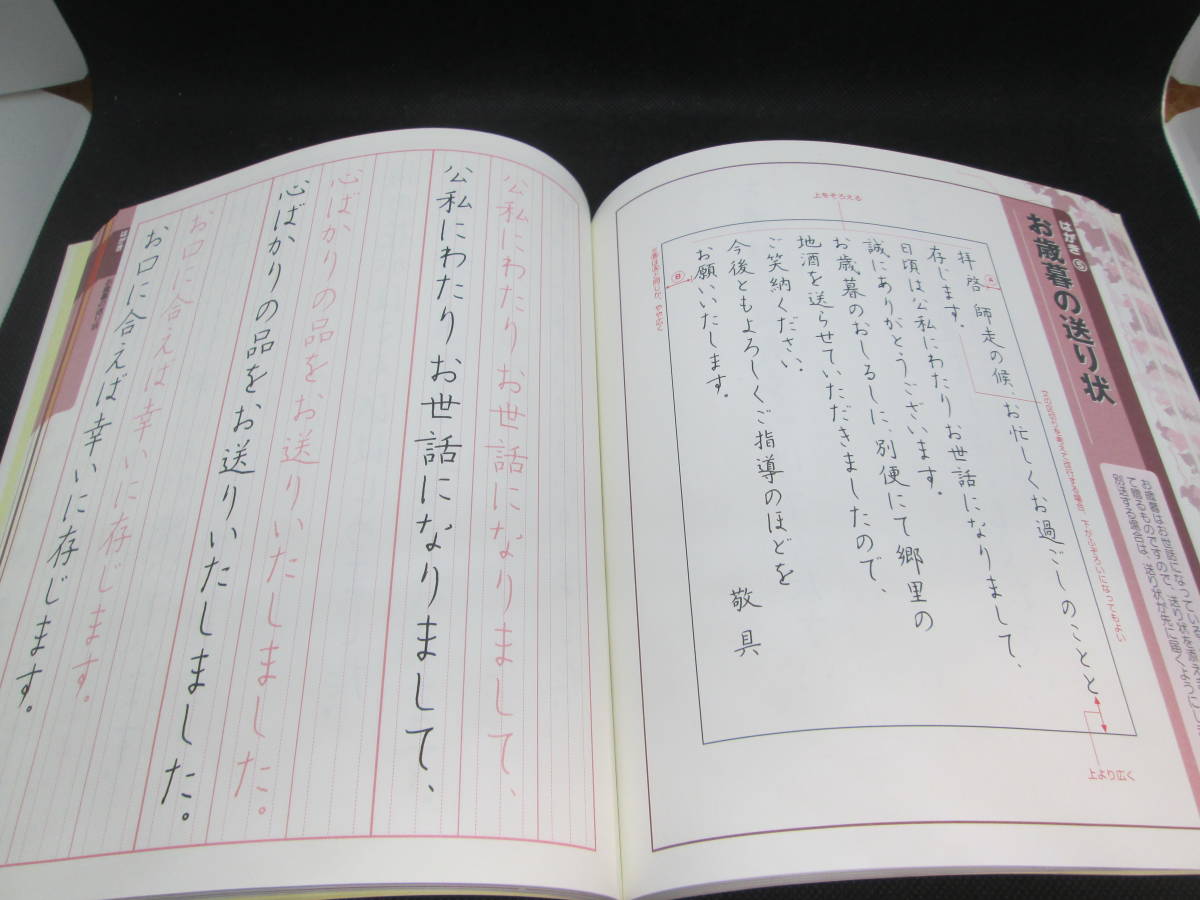 はがき⑤
お歳暮の送り状
お歳暮はお世話になっている
て贈るものですので、送り状を添え
別送する場合は、送り状が先に届くように
上をそろえる
拝啓 師走の候、お忙しくお過ごしのことと
存じます。
日頃は公私にわたりお世話になりまして、
誠にありがとうございます。
お歳暮のおしるしに、別便にて郷里の
地酒を送らせていただきましたので、
ご笑納ください。
今後ともよろしくご指導のほどを
お願いいたします。
敬具
A
B
下が不ぞろいになってもよい
上より広く
公私にわたりお世話になりまして、
公私にわたりお世話になりまして、
心ばかりの品をお送りいたしました。
心ばかりの品をお送りいたしました。
お口に合えば幸いに存じます。
お口に合えば幸いに存じます。
はがき